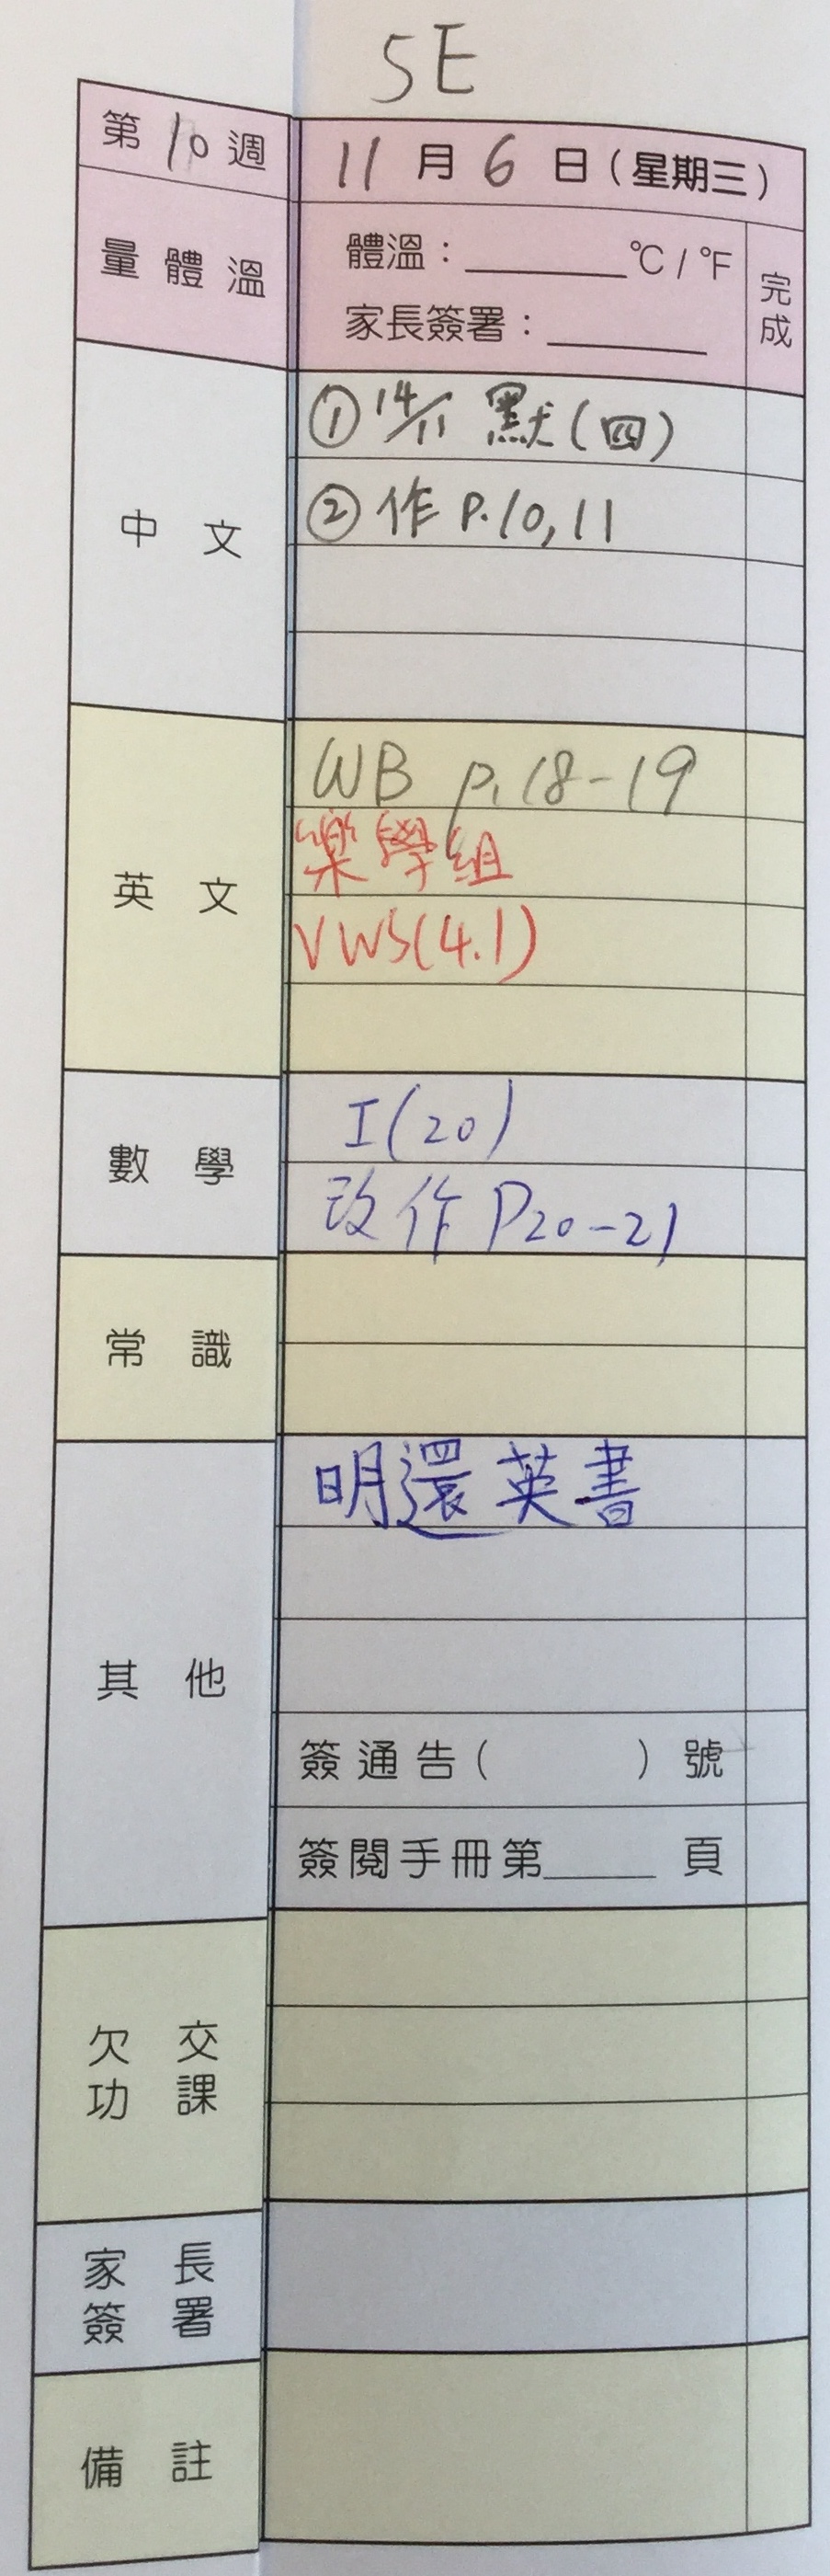 5E
第 10 週
11 月 6 日（星期三）
量 體 溫
體溫：______℃ / ℉
家長簽署：______
完成
中 文
① 14/11 默(四)
② 作 P.10,11
英 文
WB p.18-19
樂學組
VWS(4.1)
數 學
I(20)
改作 P20-21
常 識
其 他
明還英書
簽通告（ ）號
簽閱手冊第____ 頁
欠 交
功 課
家 長
簽 署
備 註